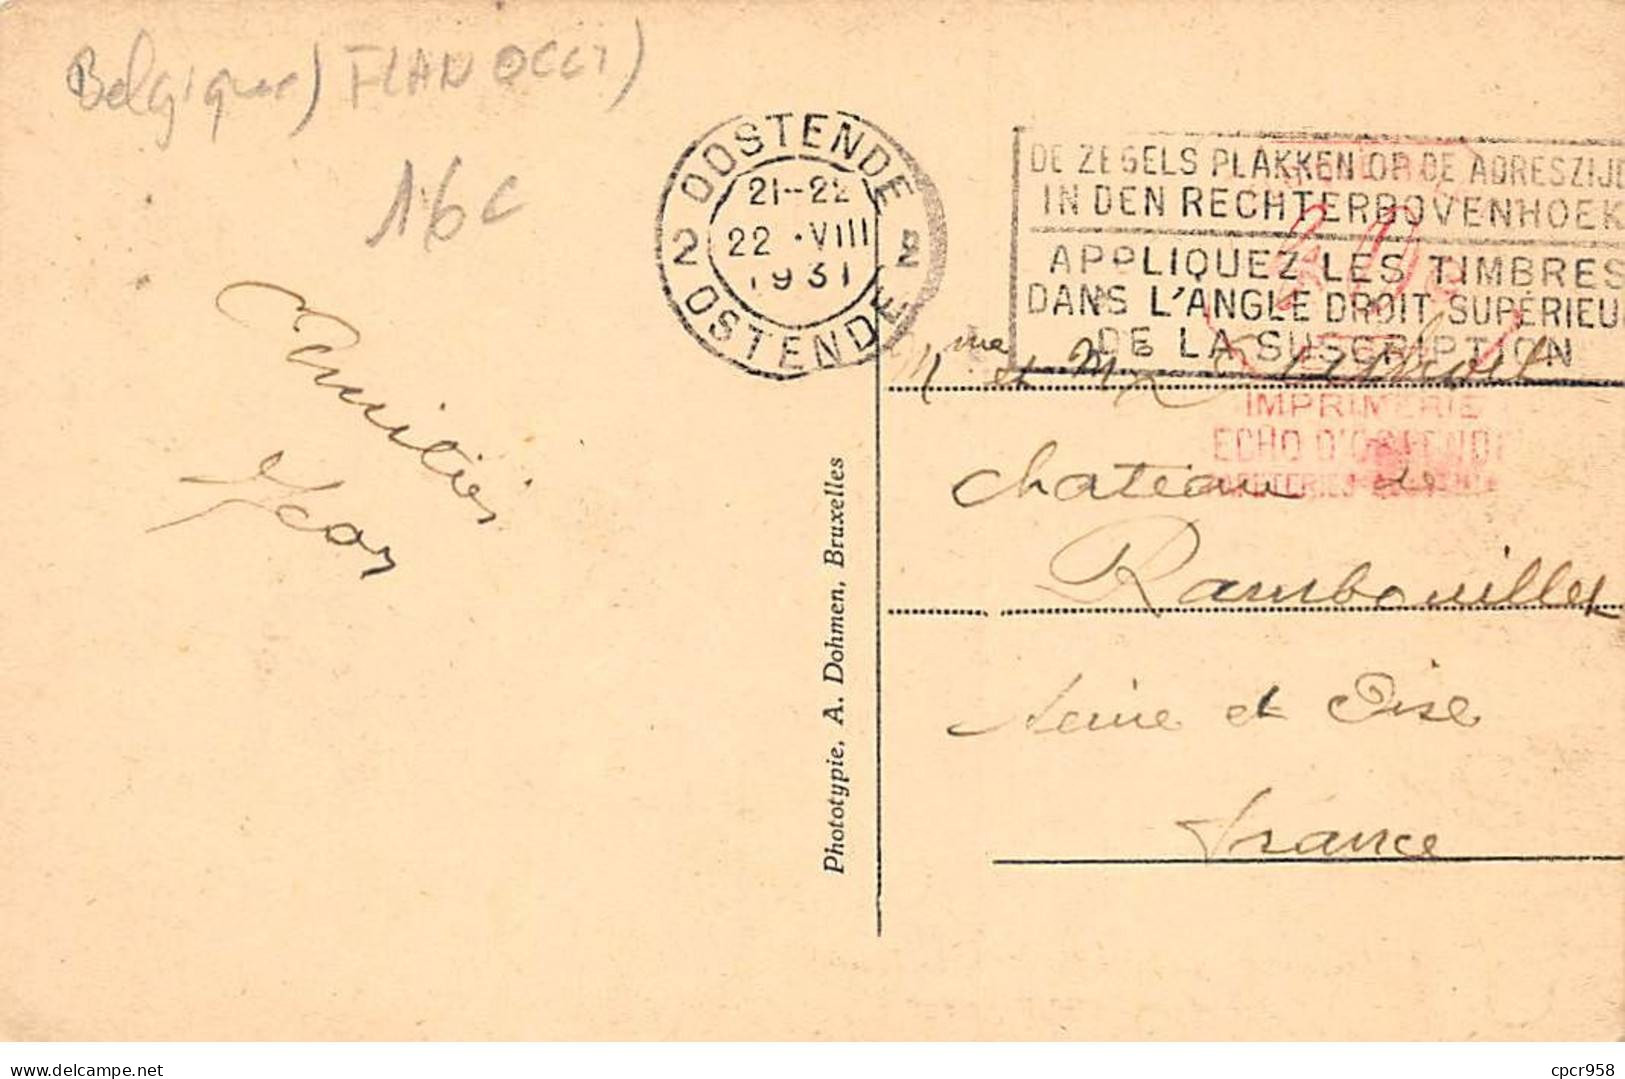 Belgique) FLAN OCCI)
16c
OOSTENDE
21-22
22 · VIII
1931
2 2
OSTENDE
DE ZEGELS PLAKKEN OP DE ADRESZIJD
IN DEN RECHTERBOVENHOEK
APPLIQUEZ LES TIMBRES
DANS L'ANGLE DROIT SUPÉRIEU
DE LA SUSCRIPTION
IMPRIMERIE
ECHO D'OSTENDE
Amitiés
Mme et Mr
Chateau de
Rambouillet
Seine et Oise
France
Phototypie, A. Dohmen, Bruxelles
delcampe.net
cpcr958